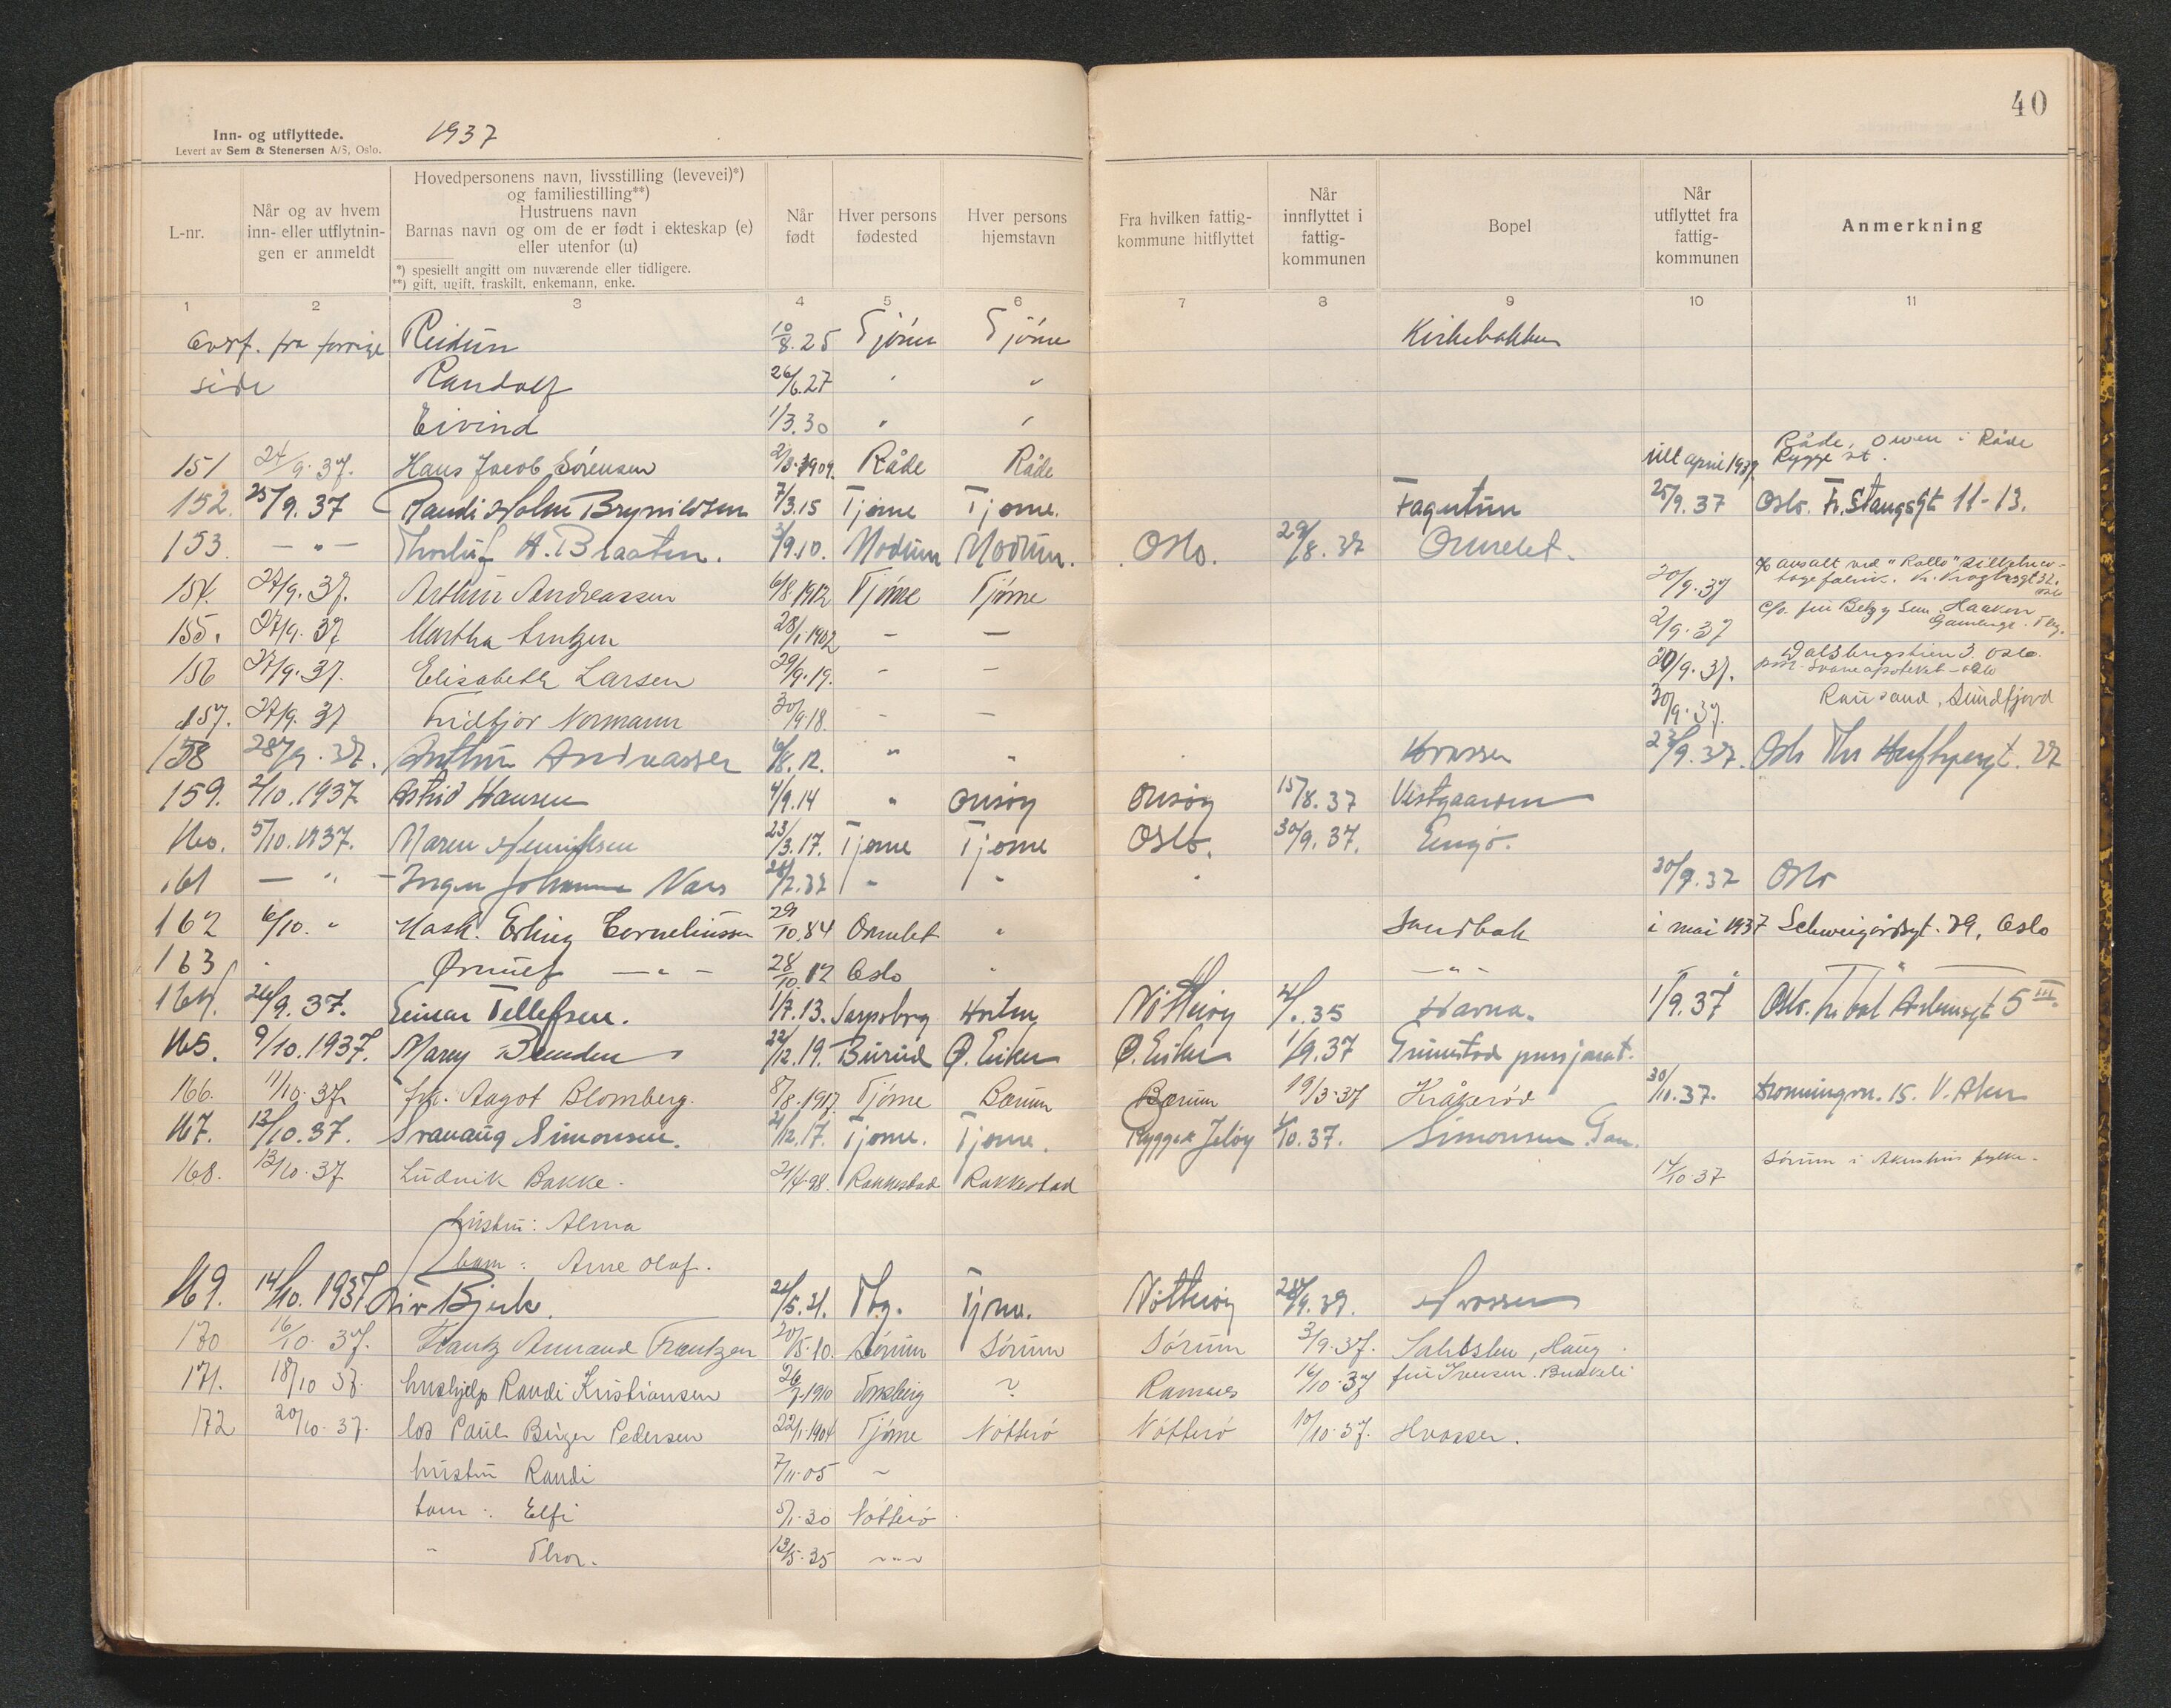 40
Inn- og utflyttede.
Levert av Sem & Stenersen A/S, Oslo.
1937
L-nr.
Når og av hvem
inn- eller utflytnin-
gen er anmeldt
Hovedpersonens navn, livsstilling (levevei)*)
og familiestilling**)
Hustruens navn
Barnas navn og om de er født i ekteskap (e)
eller utenfor (u)
*) spesielt angitt om nuværende eller tidligere.
**) gift, ugift, fraskilt, enkemann, enke.
Når
født
Hver persons
fødested
Hver persons
hjemstavn
Fra hvilken fattig-
kommune hitflyttet
Når
innflyttet i
fattig-
kommunen
Bopel
Når
utflyttet fra
fattig-
kommunen
Anmerkning
1 2 3 4 5 6 7 8 9 10 11
Overf. fra forrige Reidun 10/8.25 Tjöme Tjöme Kirkebakken
side Randolf 26/6.27 " "
Eivind 1/3.30 " "
151 24/9.37. Hans Jacob Sörensen 2/3.1909. Råde Råde till april 1937. Råde, i Råde
Rygge st.
152. 25/9.37 Randi Holm Brynildsen 7/3.15 Tjøme Tjøme. Fagertun 25/9.37 Oslo. Fr. Stangsgt 11-13.
153. — " — Thorleif A. Braaten. 3/9.10. Modum Modum. Oslo. 29/8.37 Ormelet.
154. 27/9.37. Arthur Andreassen 6/8.1912 Tjöme Tjöme 20/9.37 ansatt ved "Rollo" Kr. Kroghsgt 32. Oslo
155. 27/9.37 Martha Arntzen 28/1.1902 — — 2/9.37 c/o. fru Betzy Sem. Haakon Gamlesgt. Tbg.
156 27/9.37. Elisabeth Larsen 29/9.19. — — 20/9.37. Dalsbergstien 3. Oslo.
Svaneapoteket - Oslo
157. 27/9.37 Fridtjov Normann 30/9.18. — — 30/9.37. Rausand, Sundfjord
158 28/9.37. Arthur Andreassen 6/8.12. " " Hvasser 22/9.37. Oslo Thr 27
159. 2/10.1937. Astrid Hansen 4/9.14 " Onsøy Onsøy 15/8.37 Vestgaarden
160. 5/10.1937. Maren Henriksen 23/3.17. Tjøme Tjøme Oslo. 30/9.37. Engö.
161 — " — Inger Johanne Næs " " 30/9.37 Oslo
162 6/10. " Mask. Erling Corneliussen 29/10.84 Ormelet " Sandbak i mai 1937 Schweigårdsgt. 39, Oslo
163 " Ørnulf — " — 28/10.12 Oslo " — " — — " —
164. 24/9.37. Einar Tellefsen. 1/7.13. Sarpsborg Horten Nötteröy Havna. 1/9.37 Oslo. 5 III.
165. 9/10.1937. Mary 22/12.19. Burud Ø. Eiker Ø. Eiker 1/9.37 Grimestad pensjonat.
166. 11/10.37. frk. Aagot Blomberg. 8/8.1917 Tjöme Bærum Bærum 19/3.37 Kråkerød 30/11.37. Dronningvn. 15. V. Aker
167. 13/10.37. Svanaug Simonsen. 21/12.17. Tjøme. Tjøme. Rygge Jeløy 1/10.37. Simonsen
168. 13/10.37 Ludvik Bakke. 21/4.98. Rakkestad Rakkestad 14/10.37 Sörum i Akershus fylke.
hustru: Alma
barn: Arne Olaf.
169. 14/10.1937 Siv Bjerk. 21/5.21. Tbg. Tjøme. Nötteröy 28/9.37. Hvasser
170 16/10.37. Frantz Amand Frantzen 20/5.10. Sörum Sörum Sörum 3/9.37. Haug.
171. 18/10 37. hushjelp Randi Kristiansen 26/7.1910 Tönsberg ? Ramnes 16/10.37 fru Iversen. Budkeli
172 20/10.37. los Paul Birger Pedersen 22/1.1904 Tjöme Nötterö Nötterö 10/10.37. Hvasser.
hustru Randi 7/11.05 —
barn: Elfi 5/1.30 Nötterö
" Thor. 13/5.35 — " —